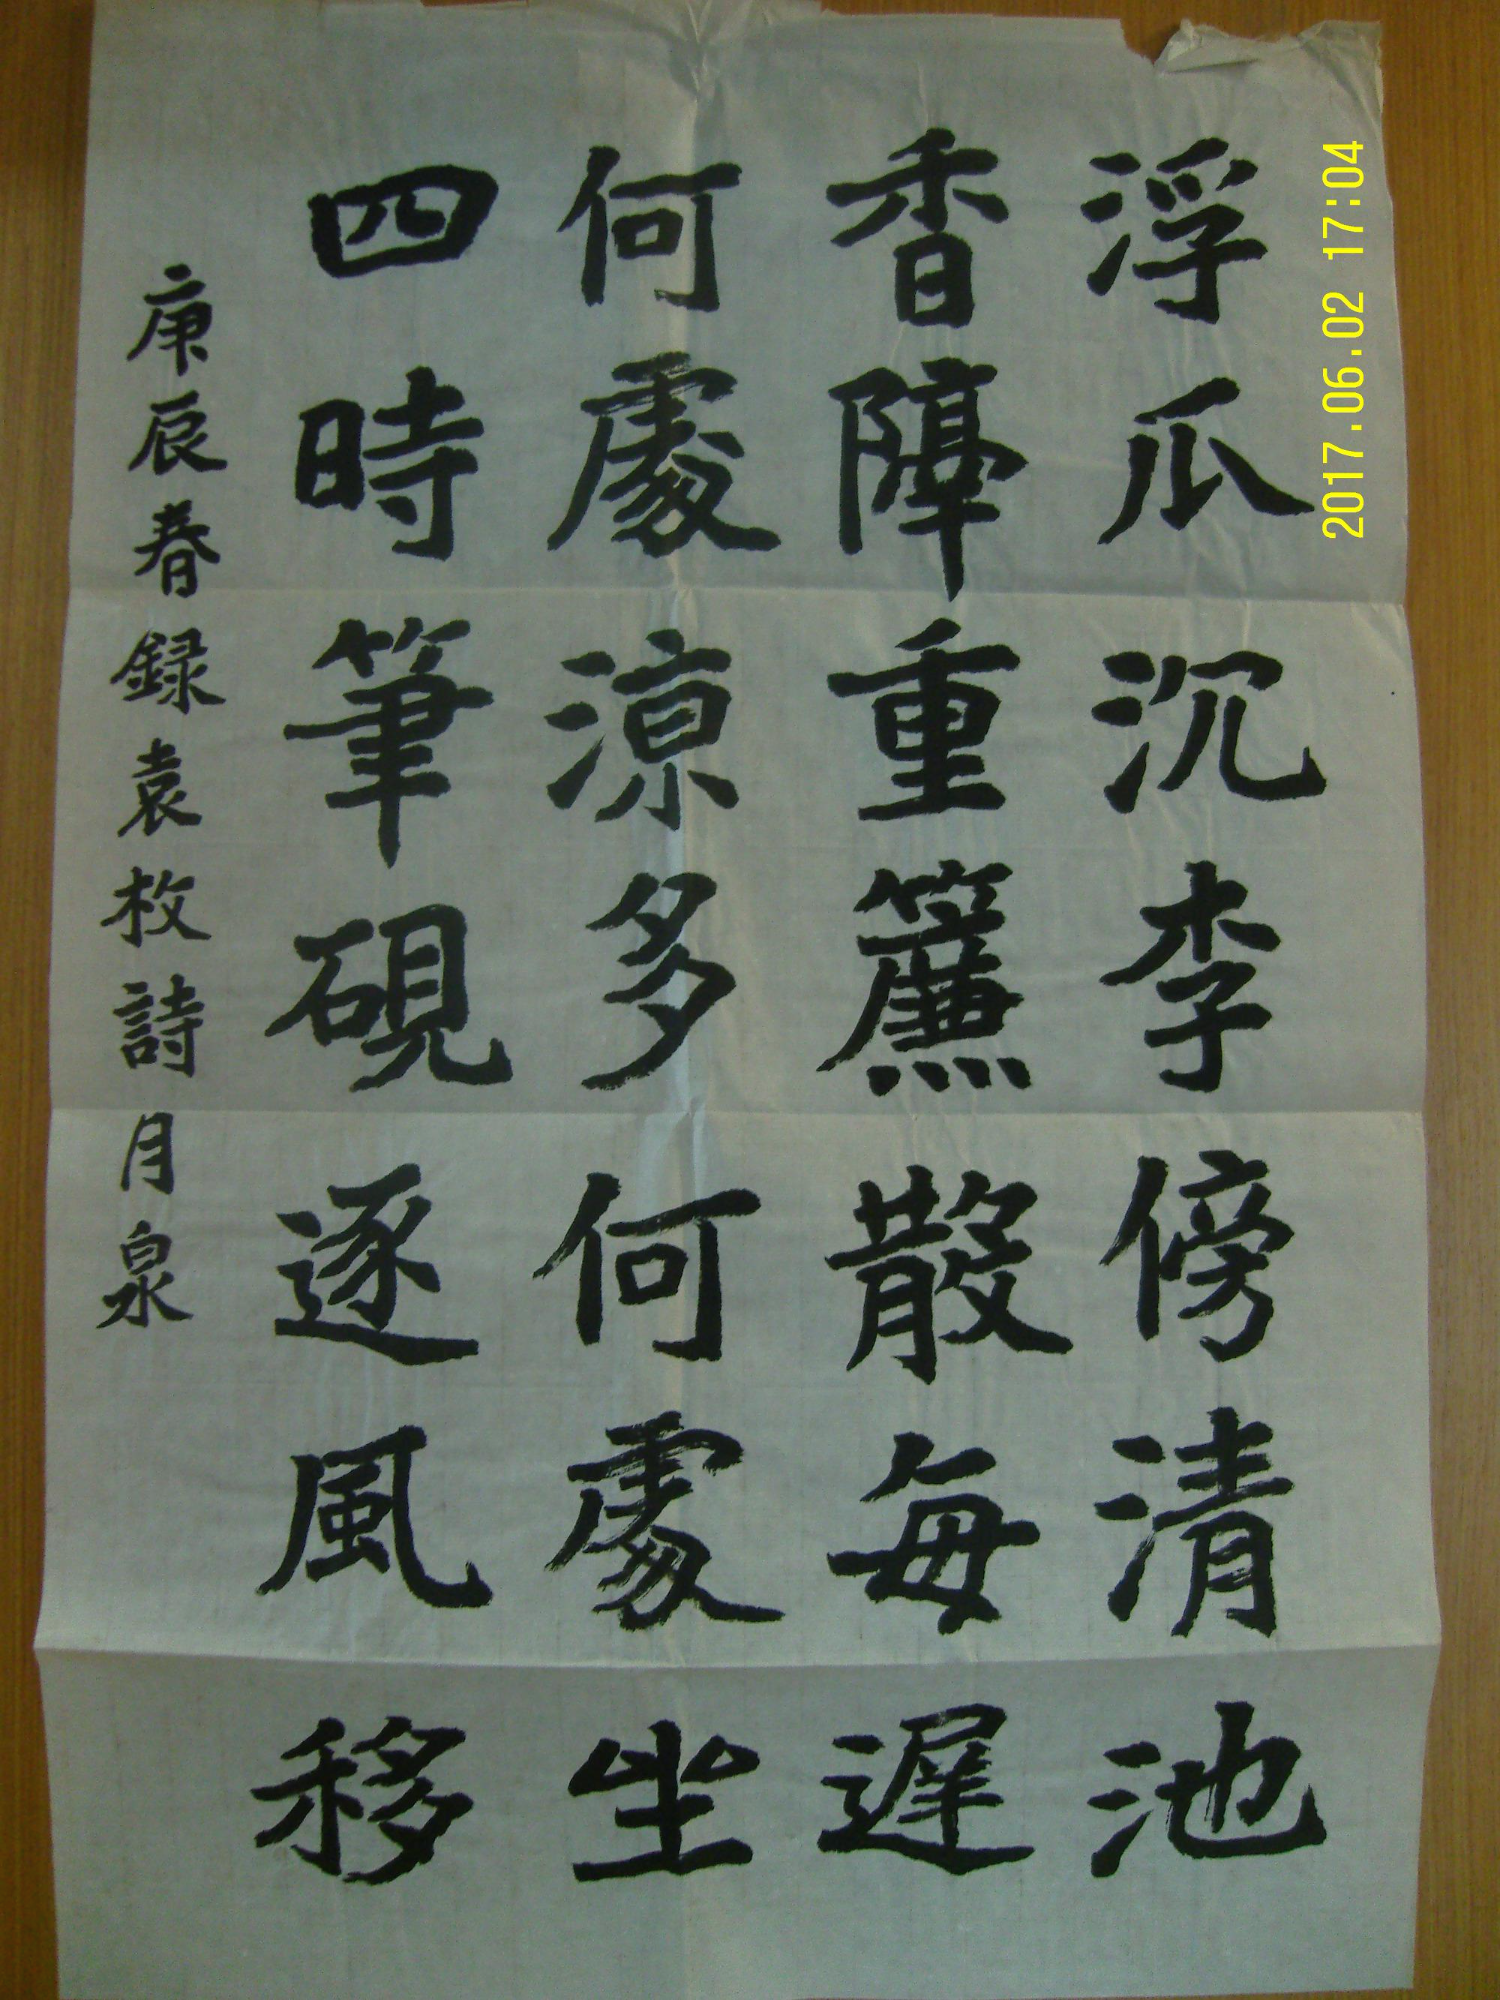 浮瓜沉李傍清池
香障重簾散每遲
何處涼多何處坐
四時筆硯逐風移
庚辰春録袁枚詩月泉
2017.06.02 17:04